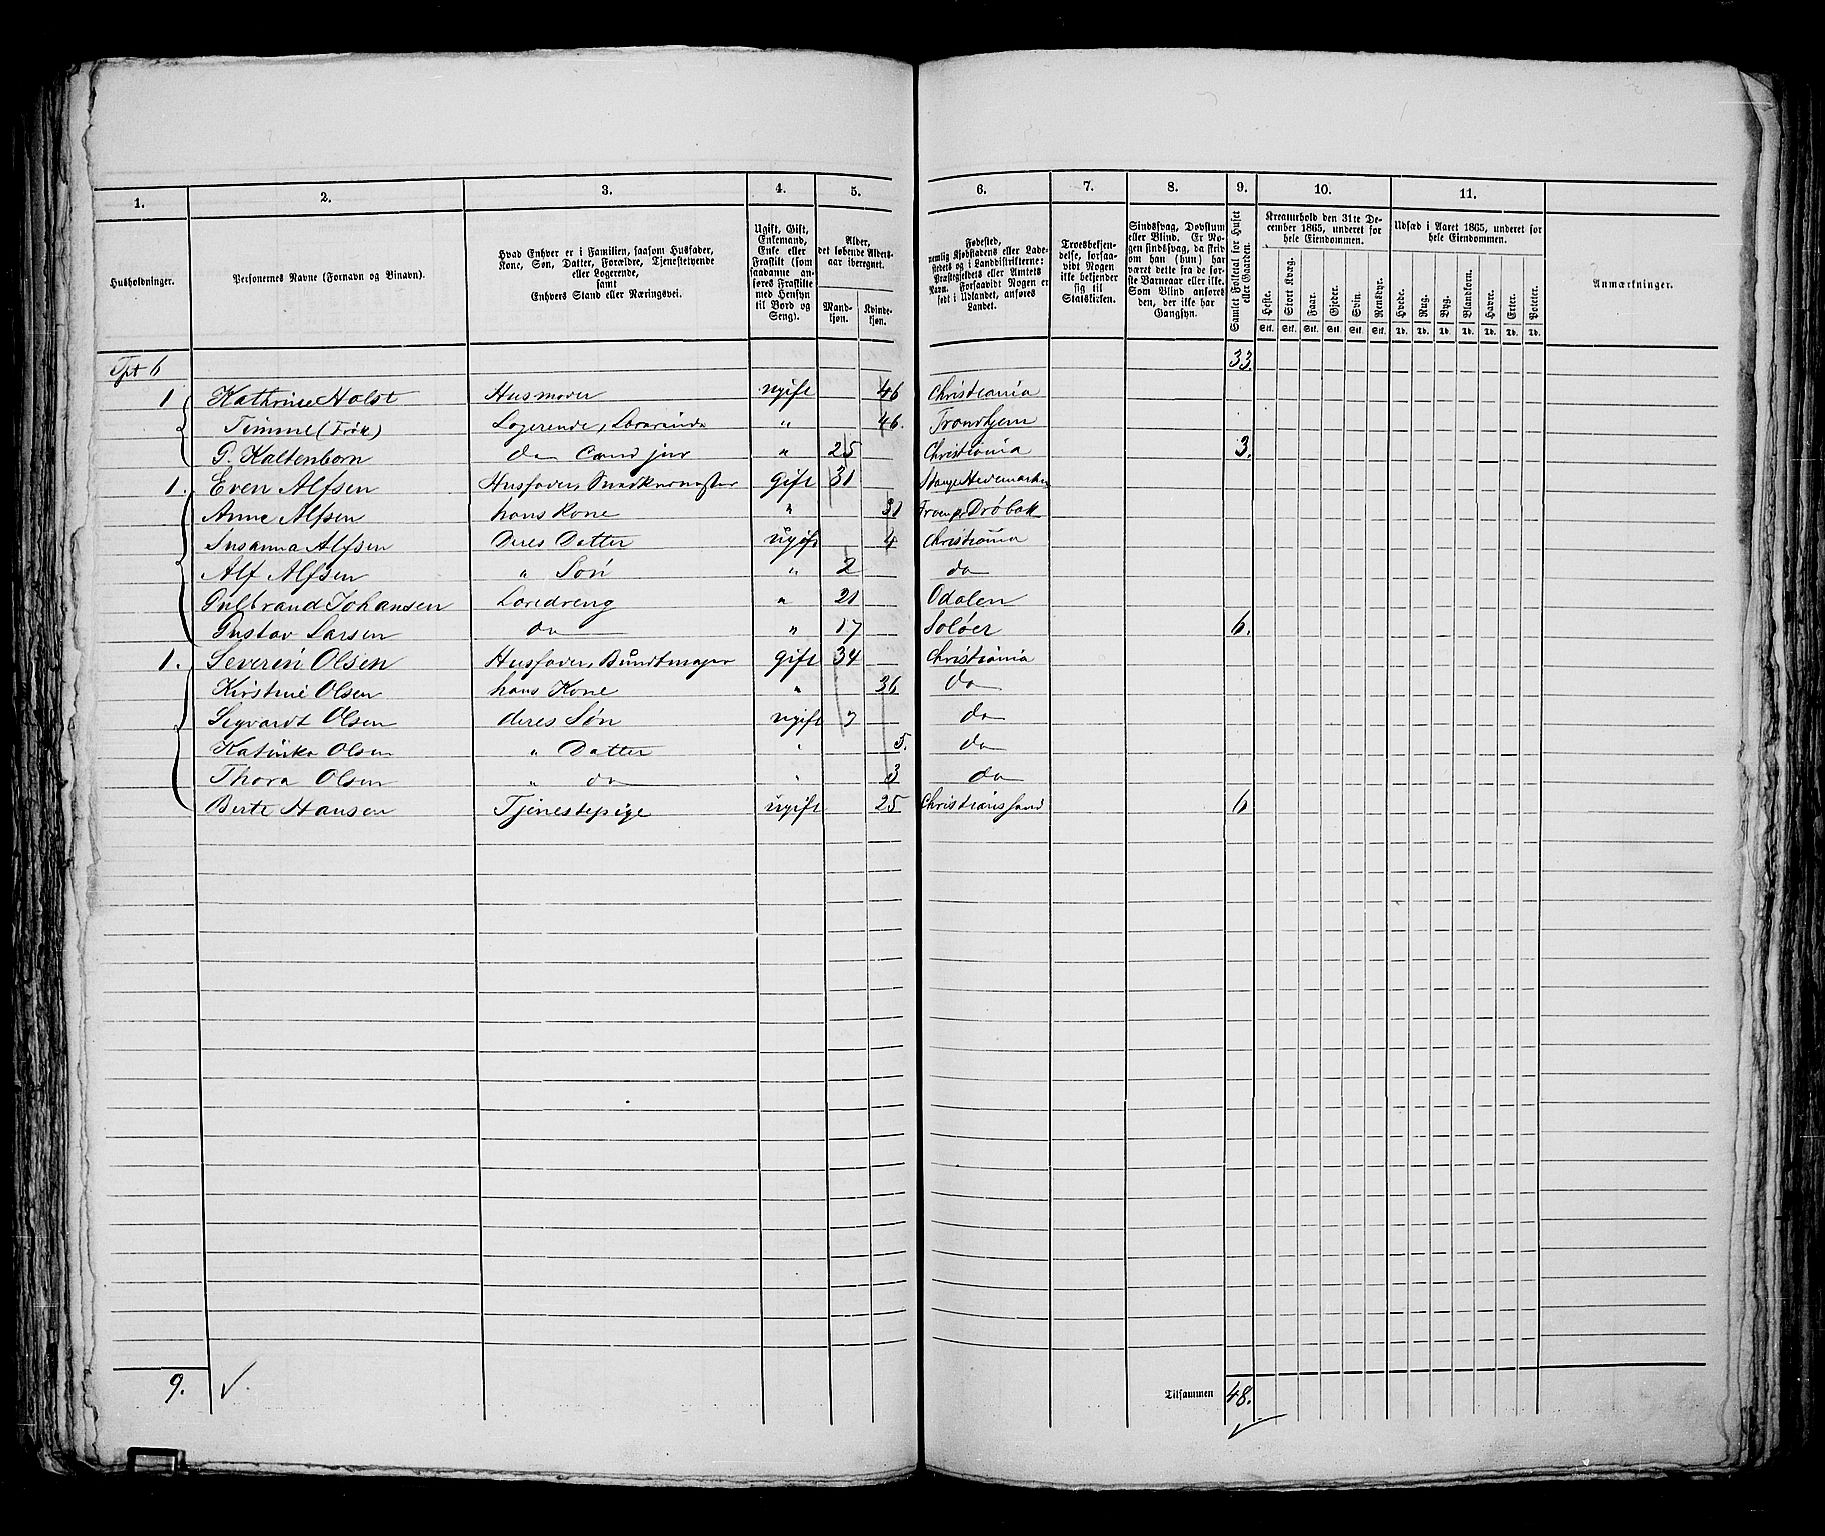 1. 2. 3. 4. 5. 6. 7. 8. 9. 10. 11.
Husholdninger.
Personernes Navne (Fornavn og Binavn).
Hvad Enhver er i Familien, saasom Husfader,
Kone, Søn, Datter, Forældre, Tjenestetyende
eller Logerende,
samt
Enhvers Stand eller Næringsvei.
Ugift, Gift,
Enkemand,
Enke eller
Fraskilt (som
saadanne an-
føres Fraskilte
med Hensyn
til Bord og
Seng).
Alder,
det løbende Alders-
aar iberegnet.
Mand-
kjøn.
Kvinde-
kjøn.
Fødested,
nemlig Kjøbstadens eller Lade-
stedets og i Landdistrikterne:
Præstegjeldets eller Amtets
Navn. Forsaavidt Nogen er
født i Udlandet, anføres
Landet.
Troesbekjen-
delse, forsaa-
vidt Nogen
ikke bekjender
sig til
Statskirken.
Sindssvag, Døvstum
eller Blind. Er No-
gen sindssvag, da skriv
om han (hun) har
været dette fra de før-
ste Barneaar eller ikke.
Som Blind anføres
den, der ikke har
Gangsyn.
Samlet Folketal for Huset
eller Gaarden.
Kreaturhold den 31te De-
cember 1865, underet for
hele Eiendommen.
Heste. Stort Kvæg. Faar. Gjeder. Svin. Rensdyr.
Stk. Stk. Stk. Stk. Stk. Stk.
Udsæd i Aaret 1865, underet for
hele Eiendommen.
Hvede. Rug. Byg. Blandkorn. Havre. Erter. Poteter.
Td. Td. Td. Td. Td. Td. Td.
Anmærkninger.
Tpt 6 33.
1 Kathrine Holst Husmoder ugift 46 Christiania
Timme (Frøk) Logerende, Lærerinde " 46. Trondhjem
P. Kaltenborn do Cand jur " 25 Christiania 3.
1. Even Alfsen Husfader, Snedkermester Gift 31 Stange Hedemarken
Anne Alfsen hans Kone " 31 Drøbak
Susanna Alfsen Deres Datter ugift 4 Christiania
Alf Alfsen " Søn " 2 do
Gulbrand Johansen Læredreng " 21 Odalen
Gustav Larsen do " 17 Soløer 6.
1. Severin Olsen Husfader, Bundtmager gift 34 Christiania
Kirstine Olsen hans Kone " 36 do
Segvardt Olsen deres Søn ugift 7 do
Katinka Olsen " Datter " 5. do
Thora Olsen " do " 3 do
Berte Hansen Tjenestepige ugift 25 Christianssand 6
9. Tilsammen 48.